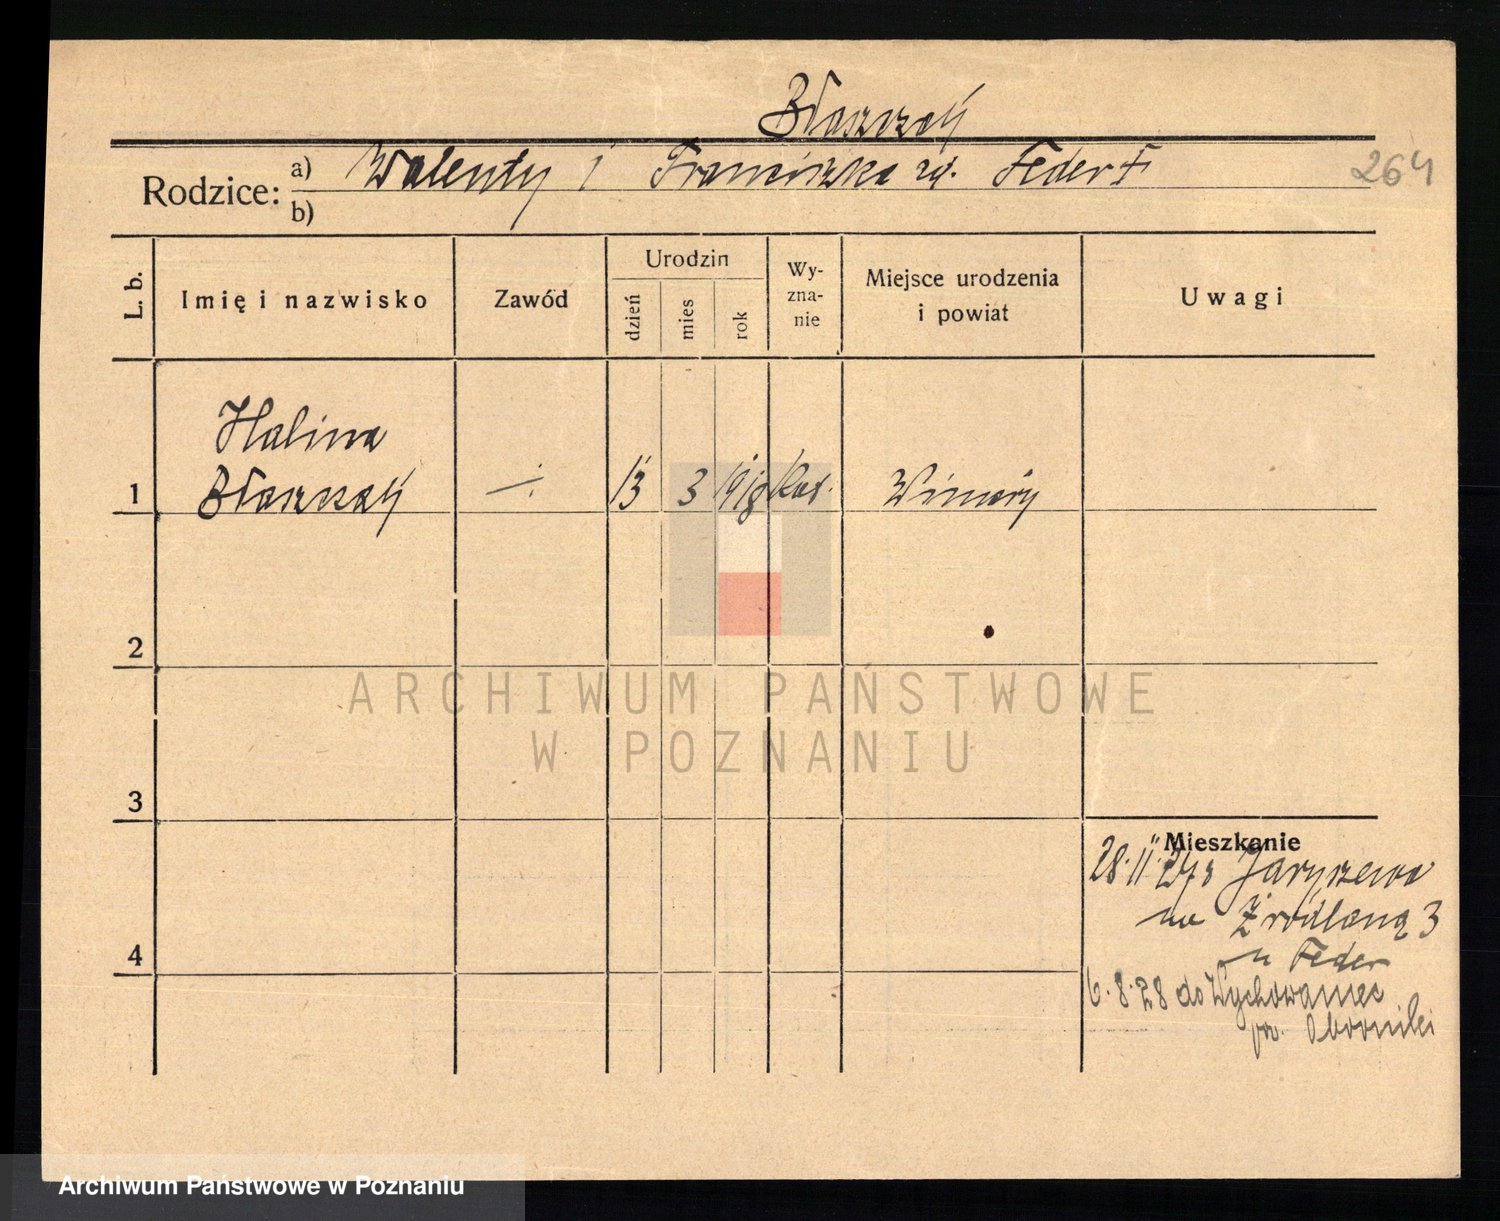 Błaszczyk
264
Rodzice: a) Walenty i Franciszka zd. Feder
b)
L. b.
Imię i nazwisko
Zawód
Urodzin
dzień
mies
rok
Wy-
zna-
nie
Miejsce urodzenia
i powiat
Uwagi
Halina
1 Błaszczyk 13 3 1918 kat. Winiary
2
3
4
Mieszkanie
28.II.27 z Jaryszewa
na Źródlaną 3
u Feder
6.8.28 do Wychowaniec
pow. Oborniki
ARCHIWUM PAŃSTWOWE
W POZNANIU
Archiwum Państwowe w Poznaniu